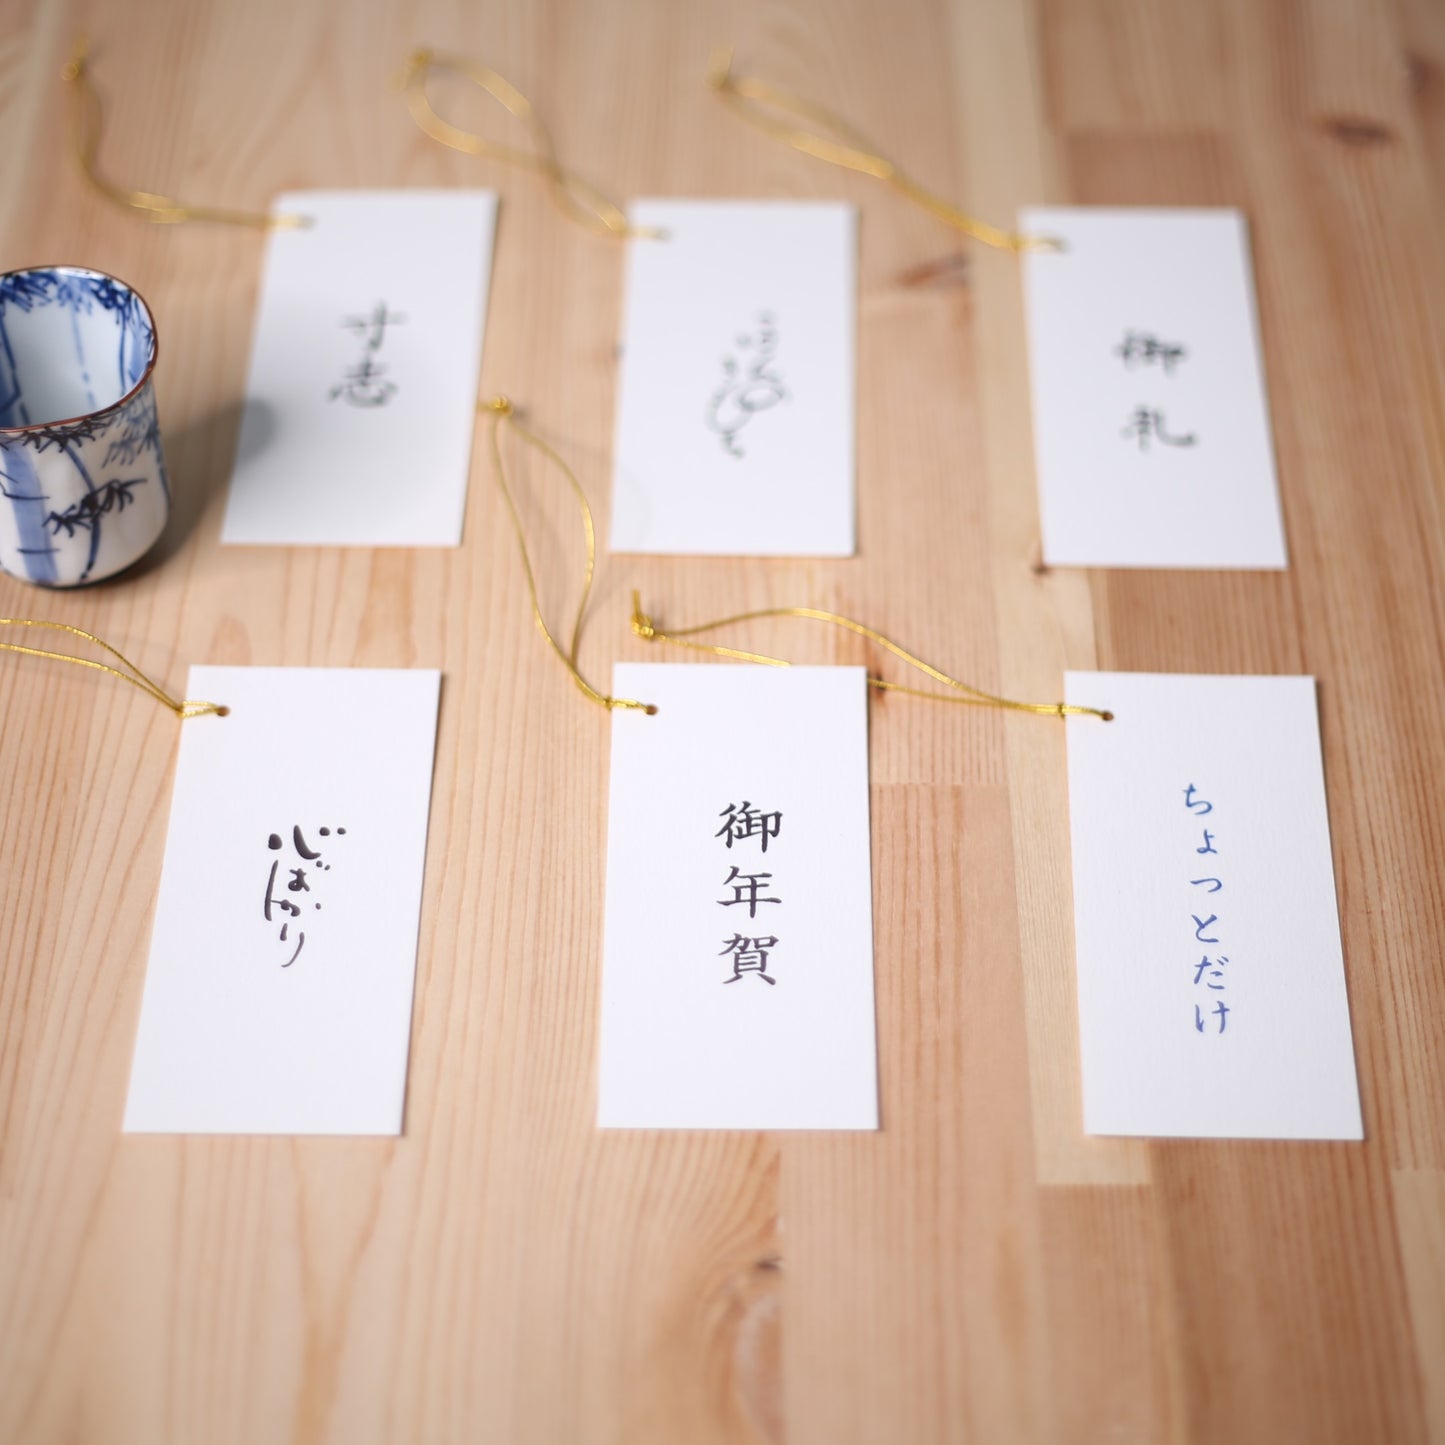 寸志
御礼
心ばかり
御年賀
ちょっとだけ